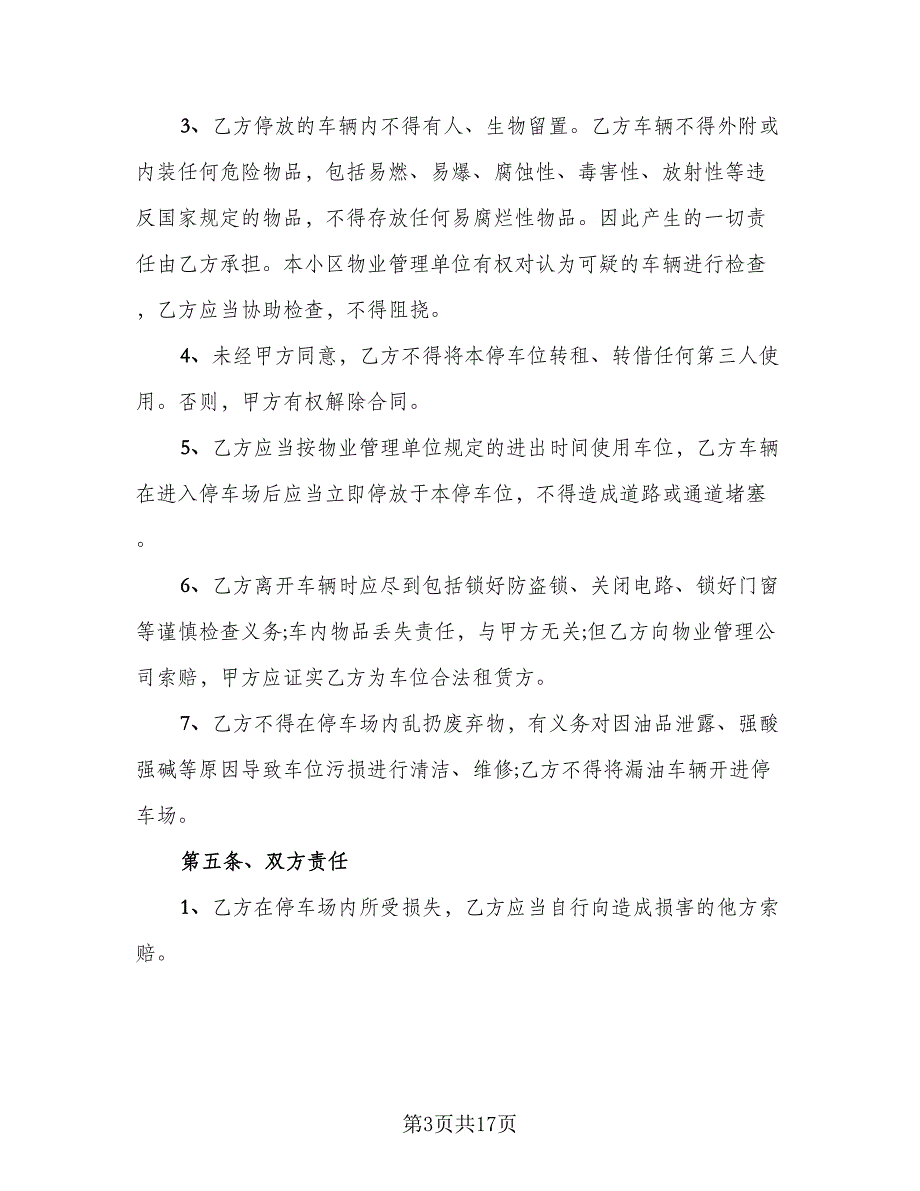 3、乙方停放的车辆内不得有人、生物留置。乙方车辆不得外附或
内装任何危险物品，包括易燃、易爆、腐蚀性、毒害性、放射性等违
反国家规定的物品，不得存放任何易腐烂性物品。因此产生的一切责
任由乙方承担。本小区物业管理单位有权对认为可疑的车辆进行检查
，乙方应当协助检查，不得阻挠。
4、未经甲方同意，乙方不得将本停车位转租、转借任何第三人使
用。否则，甲方有权解除合同。
5、乙方应当按物业管理单位规定的进出时间使用车位，乙方车辆
在进入停车场后应当立即停放于本停车位，不得造成道路或通道堵塞
。
6、乙方离开车辆时应尽到包括锁好防盗锁、关闭电路、锁好门窗
等谨慎检查义务;车内物品丢失责任，与甲方无关;但乙方向物业管理公
司索赔，甲方应证实乙方为车位合法租赁方。
7、乙方不得在停车场内乱扔废弃物，有义务对因油品泄露、强酸
强碱等原因导致车位污损进行清洁、维修;乙方不得将漏油车辆开进停
车场。
第五条、双方责任
1、乙方在停车场内所受损失，乙方应当自行向造成损害的他方索
赔。
第3页共17页